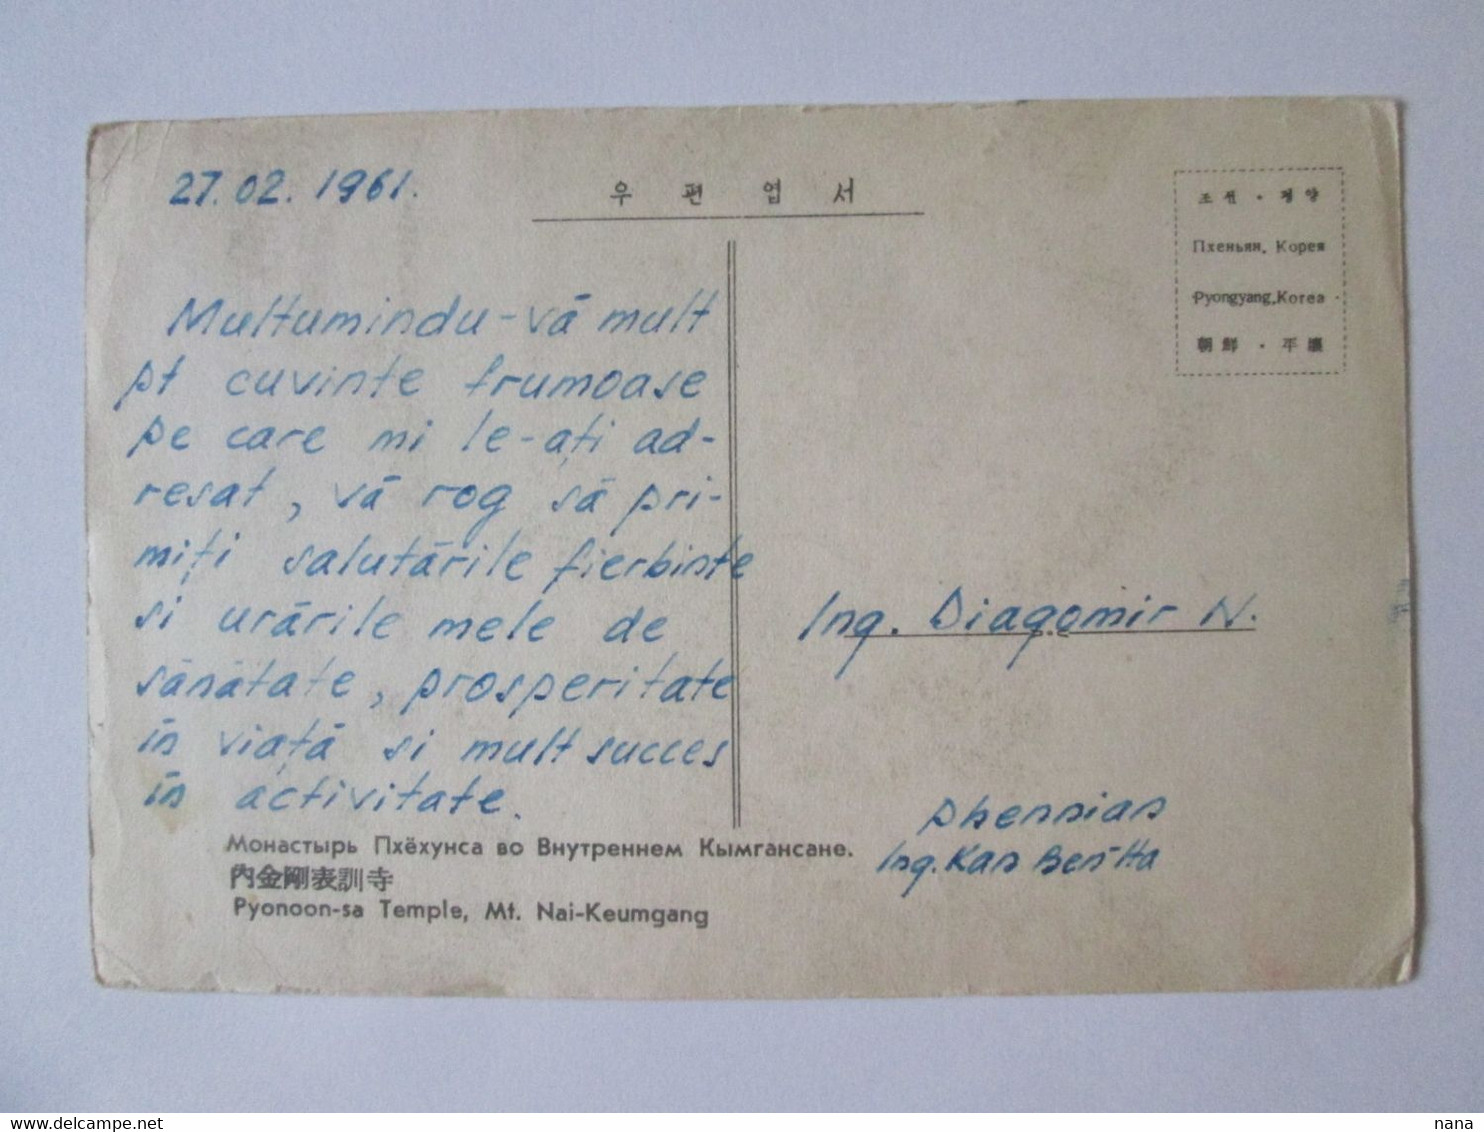 27.02.1961.
우 편 엽 서
조선 · 평양
Пхеньян, Корея
Pyongyang, Korea
朝鮮 · 平壤
Multumindu-vă mult
pt cuvinte frumoase
pe care mi le-ați ad-
resat, vă rog să pri-
miți salutările fierbinte
si urările mele de
sănătate, prosperitate
în viață si mult succes
în activitate.
Ing. Diagomir N.
Phennian
Ing. Kan
Монастырь Пхёхунса во Внутреннем Кымгансане.
內金剛表訓寺
Pyonoon-sa Temple, Mt. Nai-Keumgang
nana
www.delcampe.net